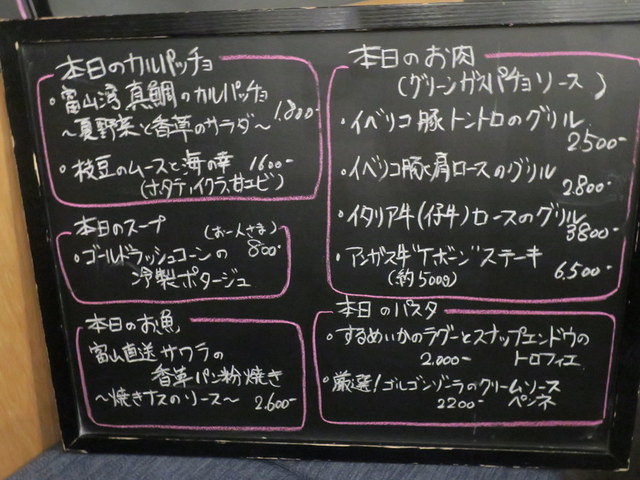 本日のカルパッチョ
・富山湾真鯛のカルパッチョ
1.800-
〜夏野菜と香草のサラダ〜
・枝豆のムースと海の幸 1600-
(ホタテ,イクラ,甘エビ)
本日のスープ
(お一人さま)
・ゴールドラッシュコーンの 800-
冷製ポタージュ
本日のお魚
富山直送サワラの
香草パン粉焼き
〜焼きナスのソース〜 2.600-
本日のお肉
(グリーンガスパチョソース)
・イベリコ豚トントロのグリル
2500-
・イベリコ豚肩ロースのグリル
2.800-
・イタリア牛(仔牛)ロースのグリル
3800-
・アンガス牛"Tボーン"ステーキ
(約500g) 6.500-
本日のパスタ
・するめいかのラグーとスナップエンドウの
2.000- トロフィエ
・厳選!ゴルゴンゾーラのクリームソース
2200- ペンネ